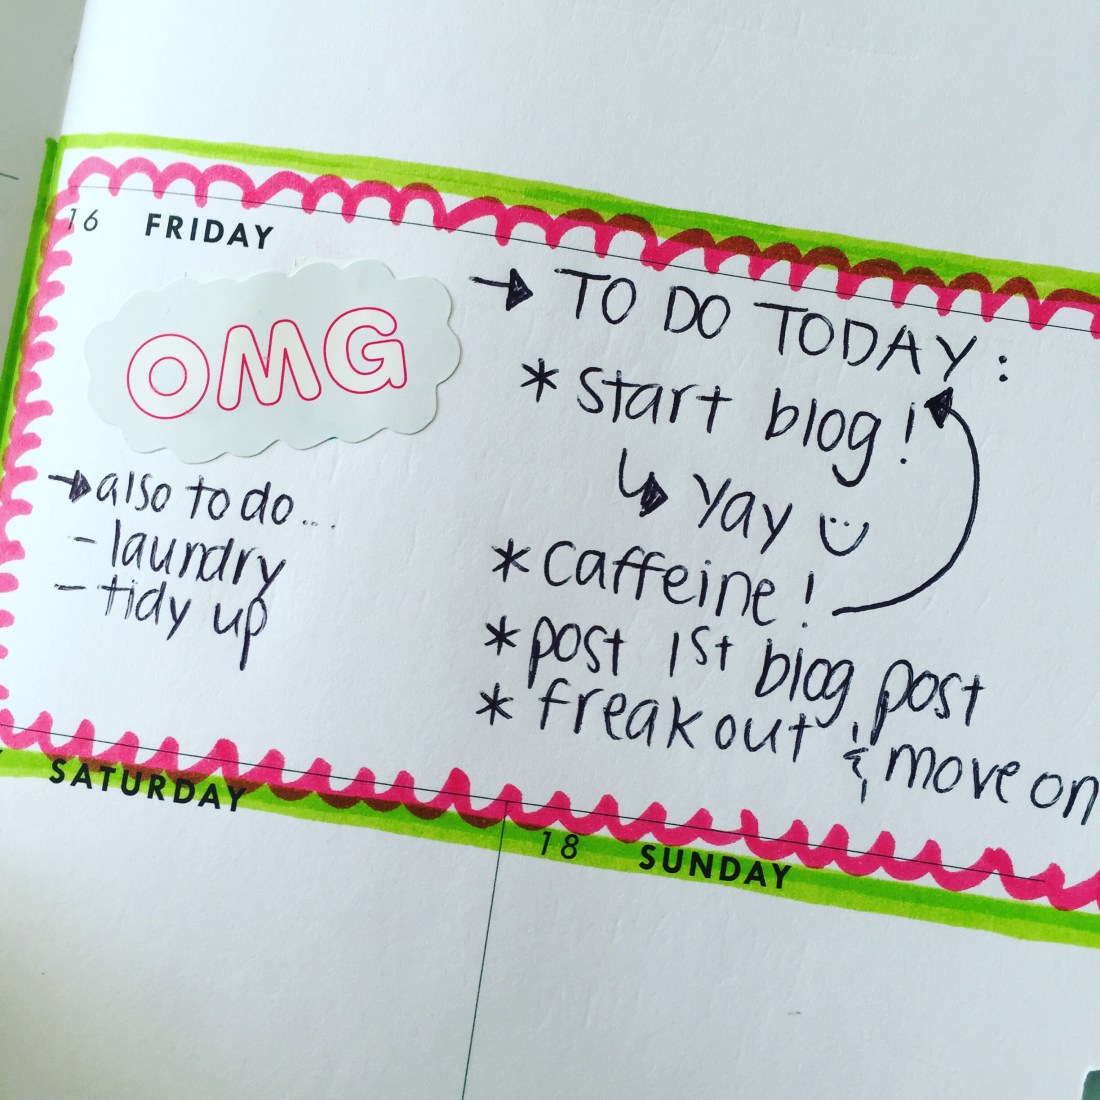 16 FRIDAY
OMG
also to do...
- laundry
- tidy up
TO DO TODAY:
* start blog!
yay
* caffeine!
* post 1st blog post
* freak out & move on
SATURDAY
18 SUNDAY